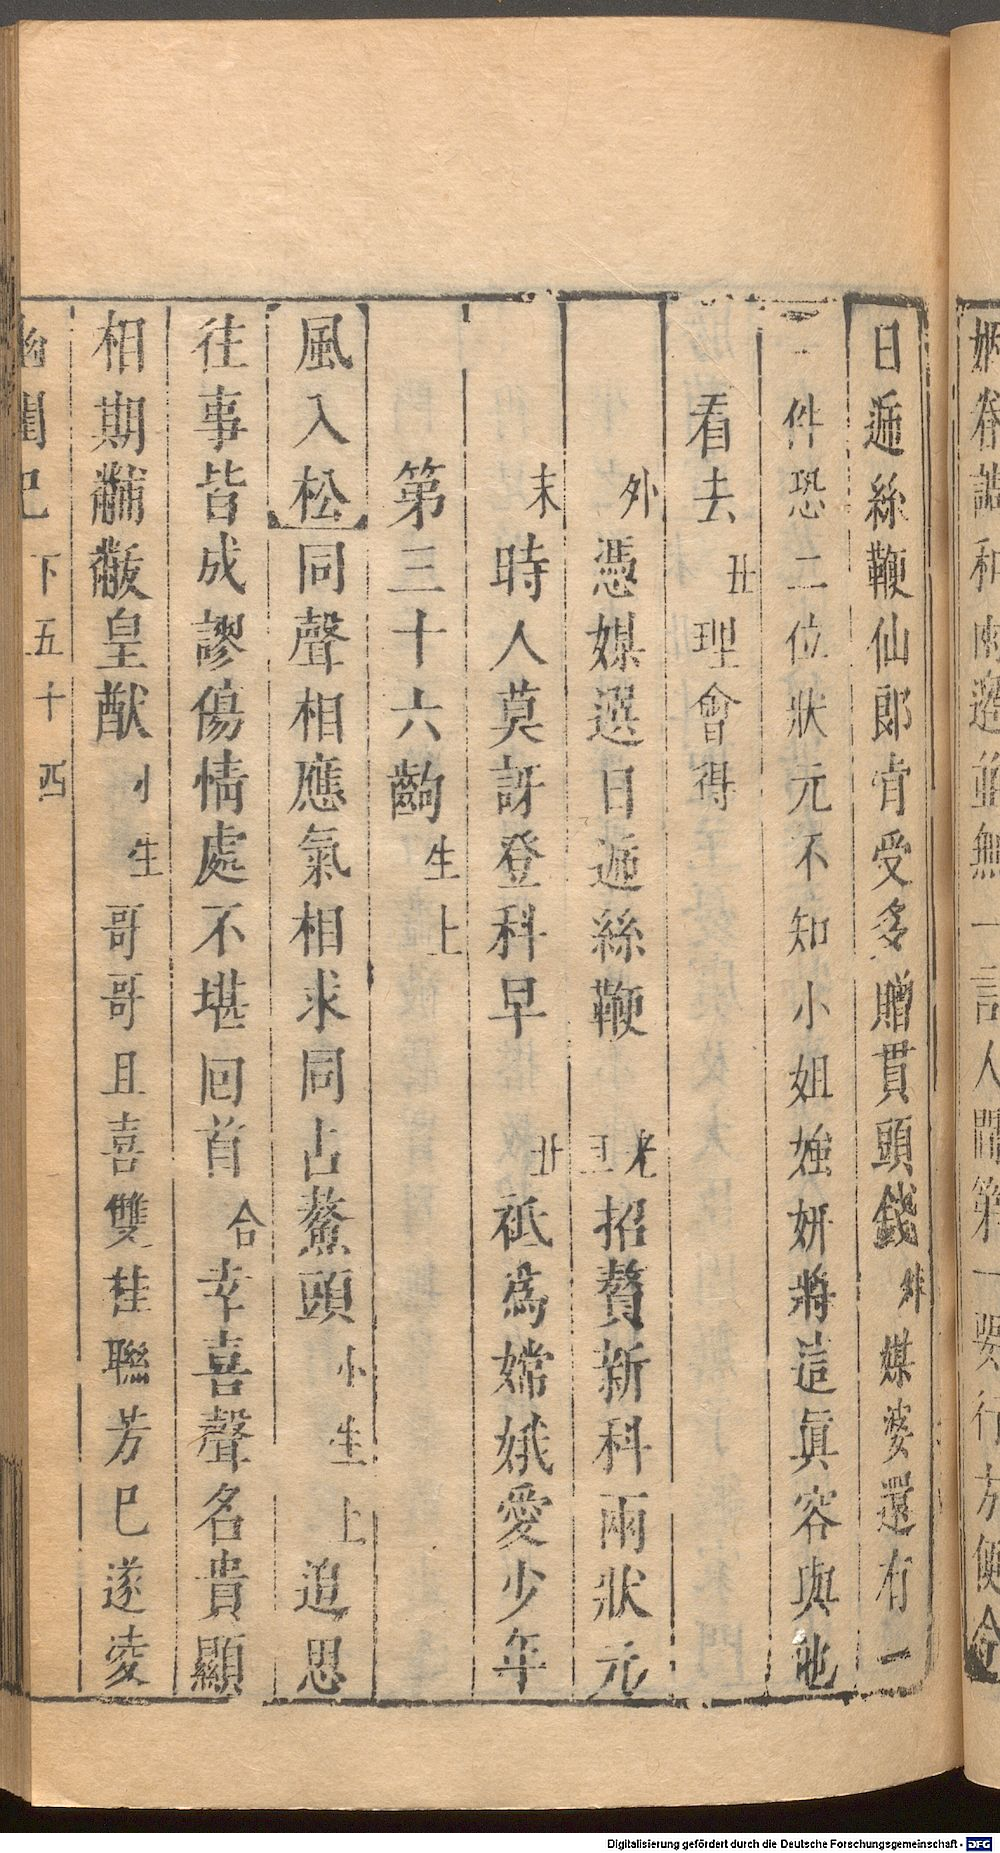 日遞絲鞭仙郎肯受多贈貫頭錢外媒婆還有一
一件恐二位狀元不知小姐媸妍將這眞容與他
看去丑理會得
外憑媒選日遞絲鞭老旦招贅新科兩狀元
末時人莫訝登科早丑祗爲嫦娥愛少年
第三十六齣生上
風入松同聲相應氣相求同占鰲頭小生上追思
往事皆成謬傷情處不堪回首合幸喜聲名貴顯
相期黼黻皇猷小生哥哥且喜雙桂聯芳已遂凌
幽閨記下五十四
Digitalisierung gefördert durch die Deutsche Forschungsgemeinschaft - DFG